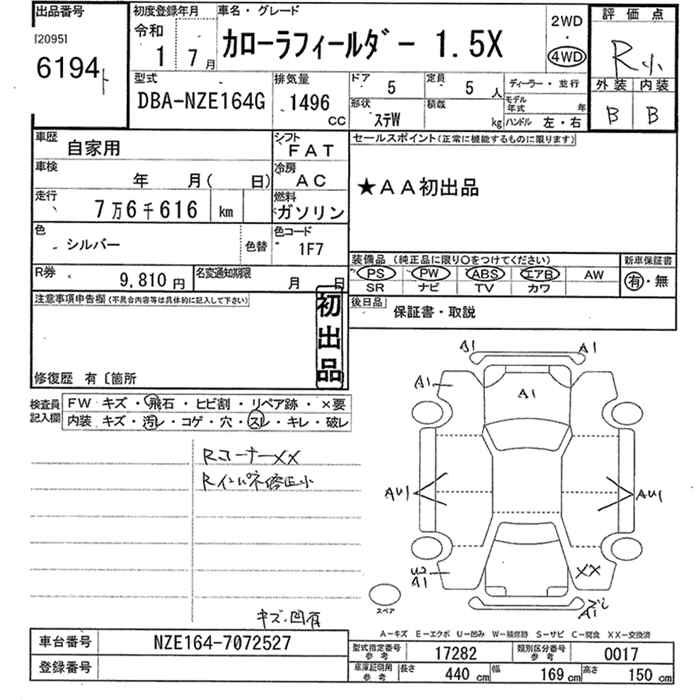 出品番号
[20951
6194 ト
初度登録年月
令和
1 7月
車名・グレード
カローラフィールダー 1.5X
2WD
・
4WD
評価点
R小
外装 内装
B B
型式
DBA-NZE164G
排気量
1496 CC
ドア 5
定員 5 人
ディーラー・並行
形状 ステW
積載 kg
モデル年式 年
ハンドル 左・右
車歴 自家用
シフト FAT
セールスポイント(正常に機能するものに限ります)
車検 年 月( 日)
冷房 AC
★AA初出品
走行 7万6千616 km
燃料 ガソリン
色 シルバー 色替
色コード 1F7
装備品(純正品に限り○をつけてください)
新車保証書
PS PW ABS エアB AW
有・無
SR ナビ TV カワ
R券 9,810円
名変通知期限 月 日
後日品 保証書・取説
注意事項申告欄(不具合内容等は具体的に記入して下さい)
初出品
修復歴 有〔箇所
検査員記入欄
FW キズ・飛石・ヒビ割・リペア跡・×要
内装 キズ・汚レ・コゲ・穴・スレ・キレ・破レ
RコーナーXX
Rインパネ修正小
キズ・凹有
A1 A1
A1
A1
AU1 AU1
A1
XX
A1
スペア
A-キズ E-エクボ U-凹み W-補修跡 S-サビ C-腐食 XX-交換済
車台番号 NZE164-7072527
登録番号
型式指定番号参考 17282
類別区分番号参考 0017
車庫証明用参考 長さ 440 cm 幅 169 cm 高さ 150 cm